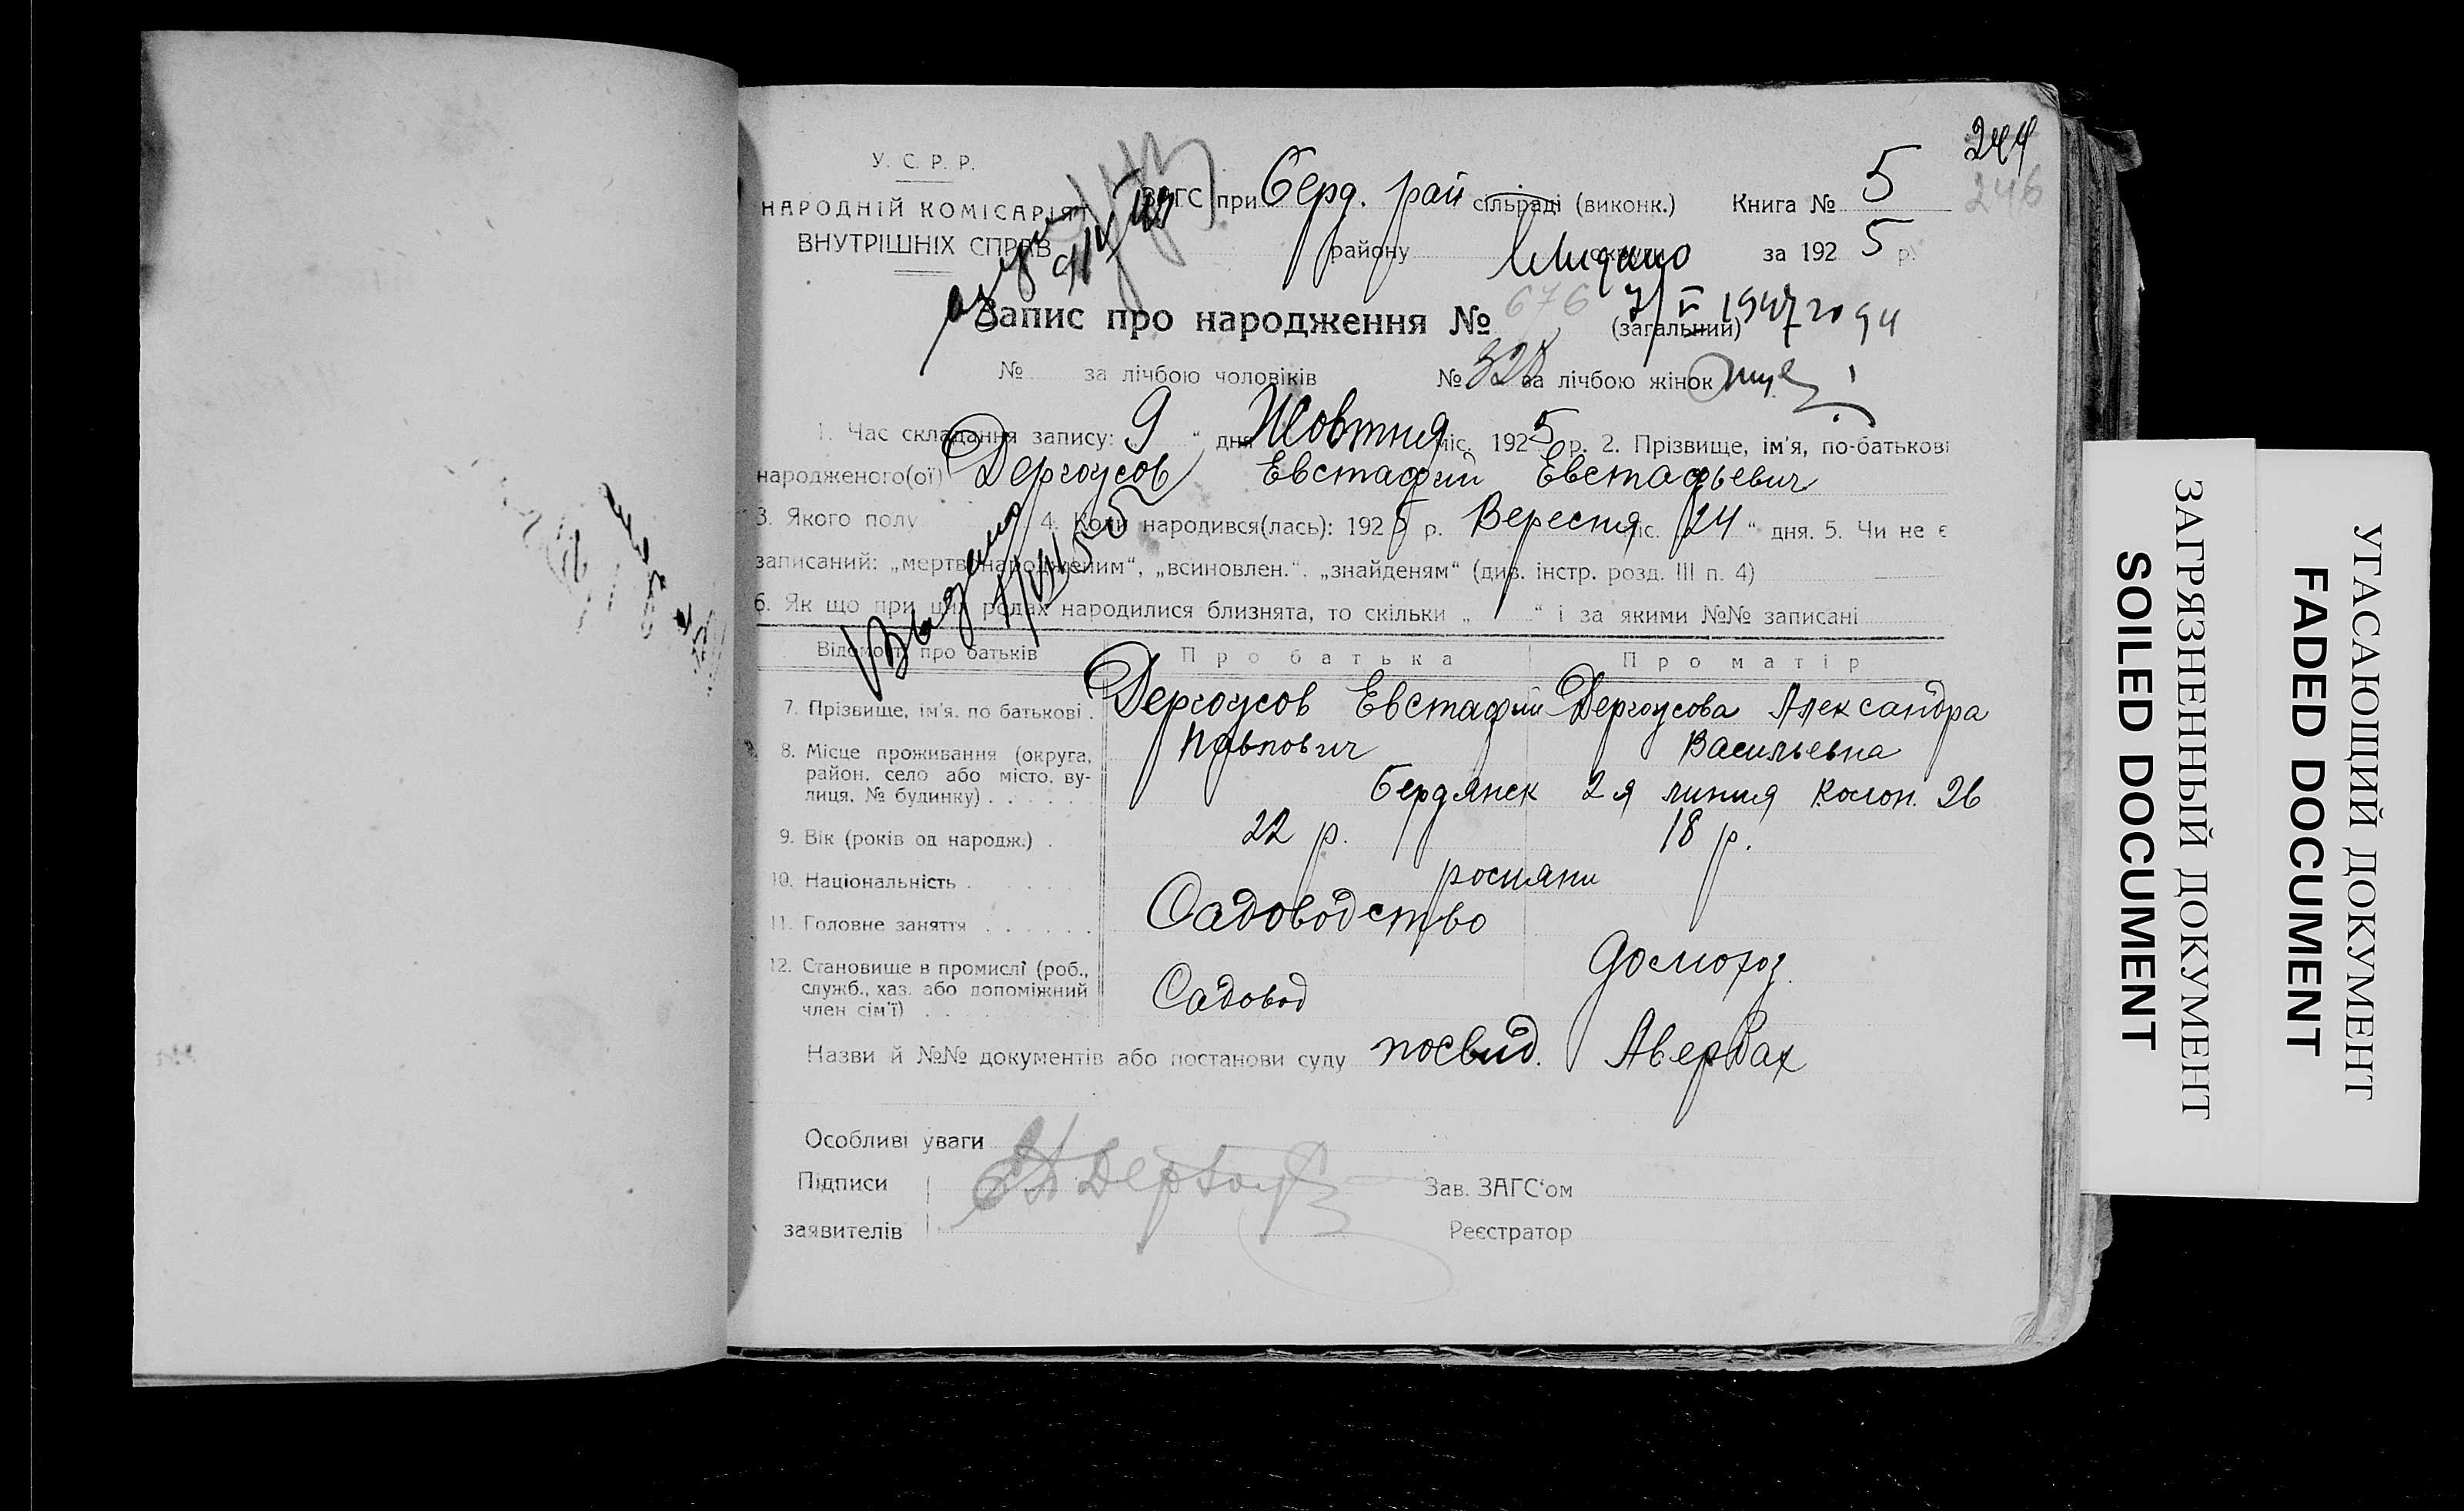 244
246
У. С. Р. Р.
НАРОДНІЙ КОМІСАРІЯТ
ВНУТРІШНІХ СПРАВ
ЗАГС при Берд. рай сільраді (виконк.) Книга № 5
району за 1925 р.
Запис про народження № 676 (загальний)
1947
№ за лічбою чоловіків № за лічбою жінок
1. Час складання запису: „9“ дня Жовтня міс. 1925 р. 2. Прізвище, ім'я, по-батькові
народженого(ої) Дергоусов Евстафий Евстафьевич
3. Якого полу 4. Коли народився(лась): 1925 р. Вересня міс. „24“ дня. 5. Чи не є
записаний: „мертвонародженим“, „всиновлен.“, „знайденям“ (див. інстр. розд. III п. 4)
6. Як що при цих родах народилися близнята, то скільки „ “ і за якими №№ записані
Выдано
Відомості про батьків Про батька Про матір
7. Прізвище, ім'я. по батькові . Дергоусов Евстафий Дергоусова Александра
Павлович Васильевна
8. Місце проживання (округа,
район, село або місто, ву-
лиця, № будинку) . . . . . . Бердянск 2 я линия колон. 26
9. Вік (років од народж.) . 22 р. 18 р.
10. Національність . . . . . . росияни
11. Головне заняття . . . . . . Садоводство
12. Становище в промислі (роб.,
служб., хаз. або допоміжний
член сім'ї) . . . Садовод домохоз.
Назви й №№ документів або постанови суду посвид. Авербах
Особливі уваги
Підписи
заявителів
Зав. ЗАГС'ом
Реєстратор
ЗАГРЯЗНЕННЫЙ ДОКУМЕНТ
SOILED DOCUMENT
УГАСАЮЩИЙ ДОКУМЕНТ
FADED DOCUMENT